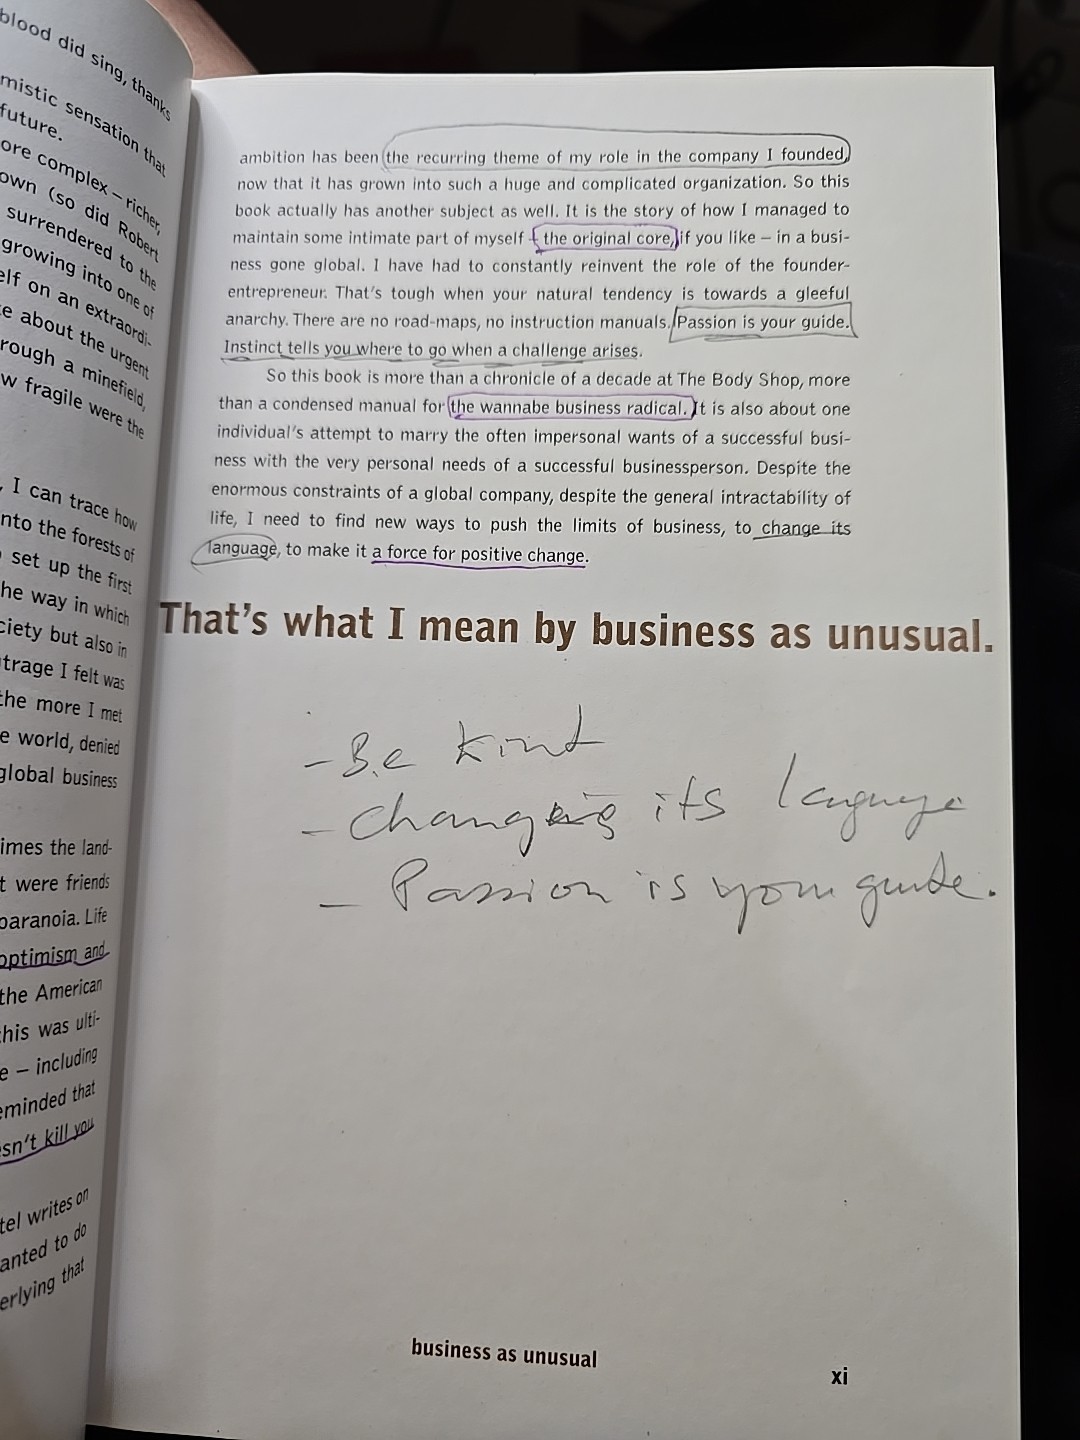 blood did sing, thanks
mistic sensation that
future.
ore complex – richer,
own (so did Robert
surrendered to the
growing into one of
elf on an extraordi-
e about the urgent
rough a minefield,
w fragile were the
, I can trace how
nto the forests of
set up the first
he way in which
ciety but also in
trage I felt was
the more I met
e world, denied
global business
imes the land-
t were friends
paranoia. Life
optimism and
the American
his was ulti-
e – including
eminded that
esn't kill you
tel writes on
anted to do
erlying that
ambition has been the recurring theme of my role in the company I founded,
now that it has grown into such a huge and complicated organization. So this
book actually has another subject as well. It is the story of how I managed to
maintain some intimate part of myself – the original core, if you like – in a busi-
ness gone global. I have had to constantly reinvent the role of the founder-
entrepreneur. That's tough when your natural tendency is towards a gleeful
anarchy. There are no road-maps, no instruction manuals. Passion is your guide.
Instinct tells you where to go when a challenge arises.
So this book is more than a chronicle of a decade at The Body Shop, more
than a condensed manual for the wannabe business radical. It is also about one
individual's attempt to marry the often impersonal wants of a successful busi-
ness with the very personal needs of a successful businessperson. Despite the
enormous constraints of a global company, despite the general intractability of
life, I need to find new ways to push the limits of business, to change its
language, to make it a force for positive change.
That's what I mean by business as unusual.
- Be kind
- Changing its language
- Passion is your guide.
business as unusual
xi